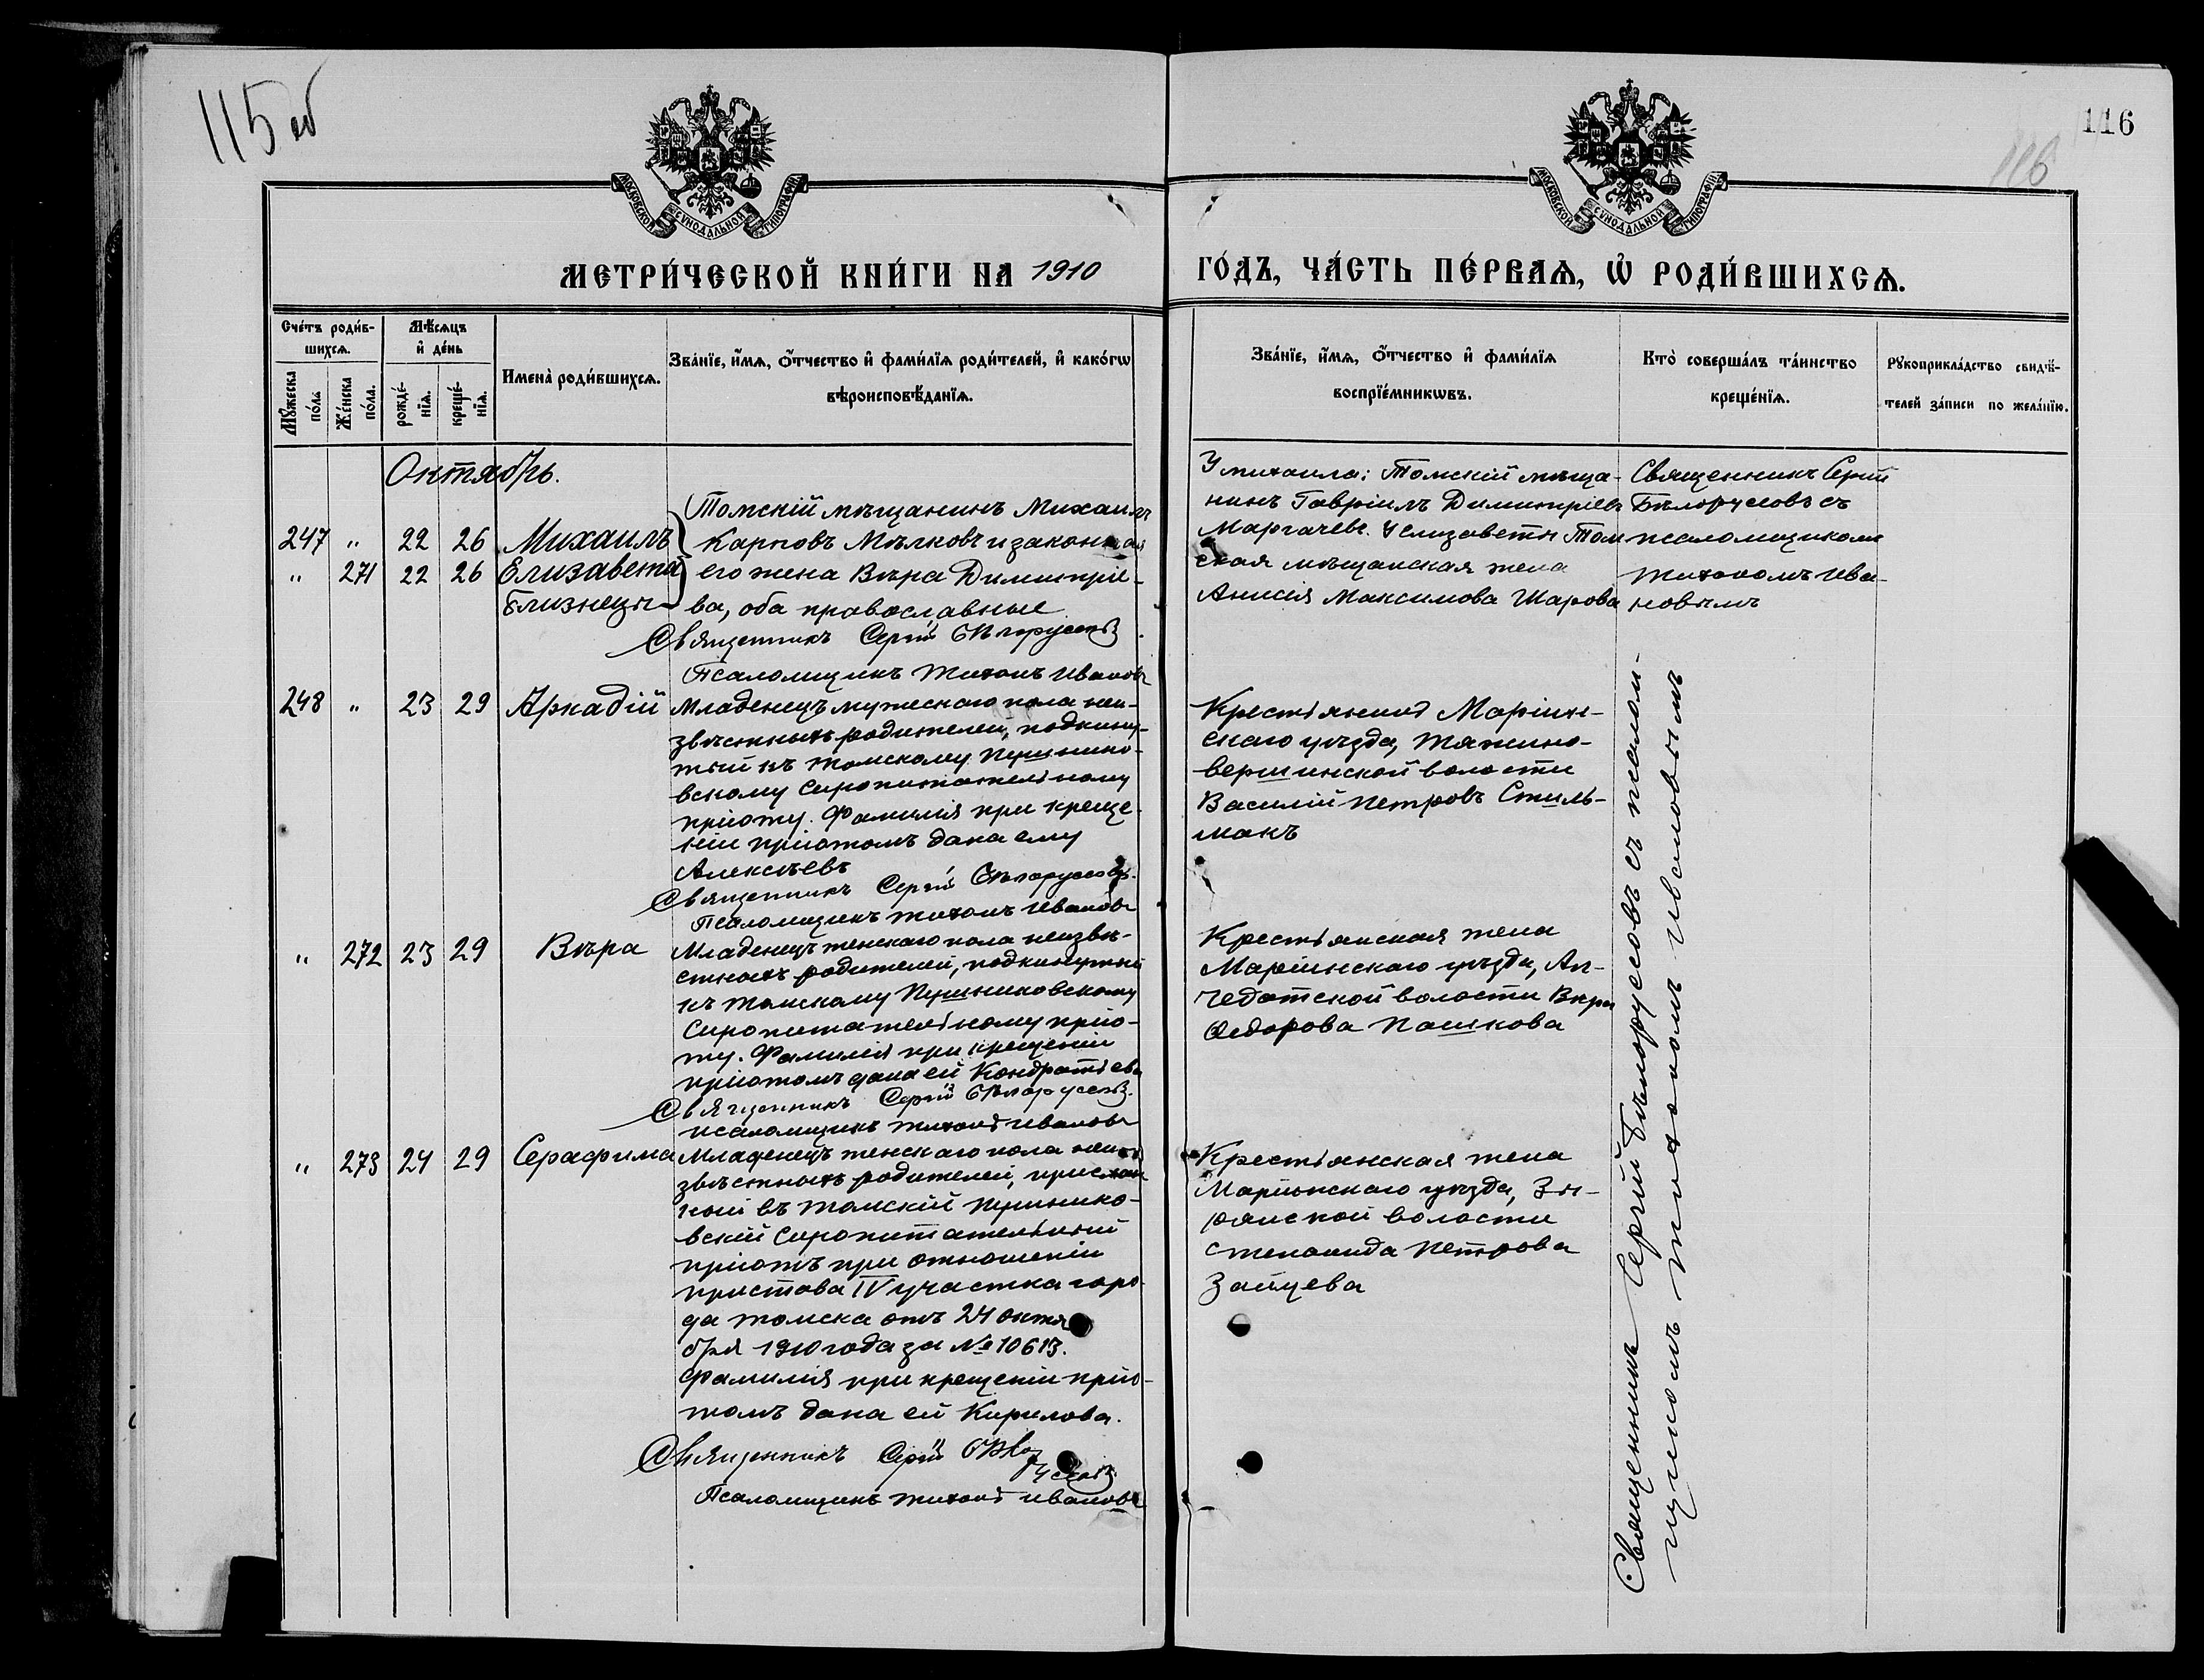 115 об
116
116
МОСКОВСКОЙ СѴНОДАЛЬНОЙ ТИПОГРАФІИ
МОСКОВСКОЙ СѴНОДАЛЬНОЙ ТИПОГРАФІИ
МЕТРИ́ЧЕСКОЙ КНИ́ГИ НА 1910 ГО́ДЪ, ЧА́СТЬ ПЕ́РВАѦ, Ѽ РОДИ́ВШИХСѦ.
Сче́тъ роди́в-
шихсѧ.
Мꙋ́жеска
по́ла
Же́нска
по́ла.
Мѣ́сѧцъ
и҆ де́нь
рожде́-
нїѧ.
креще́-
нїѧ.
Имена̀ роди́вшихсѧ.
Зва́нїе, и҆́мѧ, ѻ҆́тчество и҆ фами́лїѧ роди́телей, и҆ како́гѡ
вѣроисповѣ́данїѧ.
Зва́нїе, и҆́мѧ, ѻ҆́тчество и҆ фами́лїѧ
воспрїе́мникѡвъ.
Кто̀ соверша́лъ та́инство
креще́нїѧ.
Рꙋкоприкла́дство свидѣ́-
телей за́писи по жела́нїю.
Октябрь.
247 " 22 26 Михаилъ
" 271 22 26 Елизавета
Близнецы
Томскій мѣщанинъ Михаилъ
Карповъ Мѣлковъ и законная
его жена Вѣра Димитріе-
ва, оба православные
Священникъ Сергій Бѣлоруссовъ
Псаломщикъ Тихонъ Ивановъ
У Михаила: Томскій мѣща-
нинъ Гавріилъ Димитріевъ
Маргачевъ. У Елизаветы Том
ская мѣщанская жена
Анисія Максимова Шарова
Священникъ Сергій
Бѣлоруссовъ съ
псаломщикомъ
Тихономъ Ива-
новымъ
248 " 23 29 Аркадій
Младенецъ мужескаго пола неи-
звѣстныхъ родителей, подкину-
тый къ Томскому Пушнико-
вскому Сиропитательному
пріюту. Фамилія при креще-
ніи пріютомъ дана ему
Алексѣевъ
Священникъ Сергій Бѣлоруссовъ.
Псаломщикъ Тихонъ Ивановъ
Крестьянинъ Маріин-
скаго уѣзда, Тяжино-
вершинской волости
Василій Петровъ Стиль-
макъ
" 272 23 29 Вѣра
Младенецъ женскаго пола неизвѣ-
стныхъ родителей, подкинутый
къ Томскому Пушниковскому
Сиропитательному прію-
ту. Фамилія при крещеніи
пріютомъ дана ей Кондратьева
Священникъ Сергій Бѣлоруссовъ.
Псаломщикъ Тихонъ Ивановъ
Крестьянская жена
Маріинскаго уѣзда, Ал-
чедатской волости Вѣра
Ѳедорова Пашкова
" 273 24 29 Серафима
Младенецъ женскаго пола неи-
звѣстныхъ родителей, прислан
ный въ Томскій Пушнико-
вскій Сиропитательный
пріютъ при отношеніи
пристава IV участка горо-
да Томска отъ 24 октя
бря 1910 года за № 10613.
Фамилія при крещеніи прію-
томъ дана ей Кирилова.
Священникъ Сергій Бѣло
руссовъ.
Псаломщикъ Тихонъ Ивановъ
Крестьянская жена
Маріинскаго уѣзда, Зы-
рянской волости
Степанида Петрова
Зайцева
Священникъ Сергій Бѣлоруссовъ съ псалом-
щикомъ Тихономъ Ивановымъ